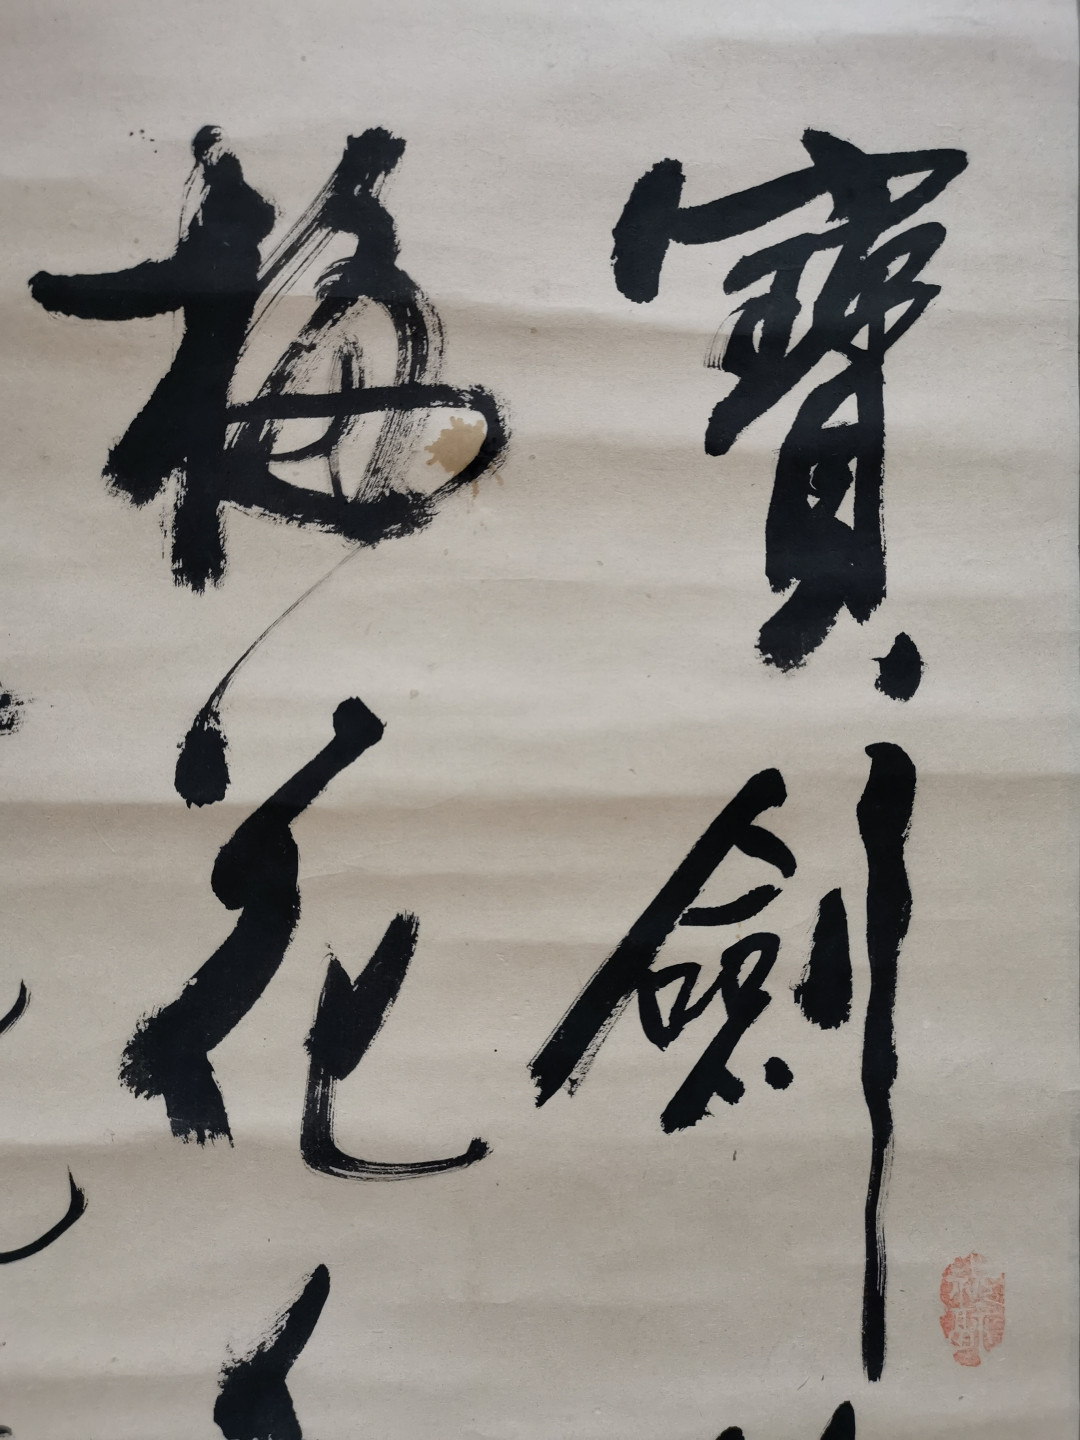 寶劍
梅花